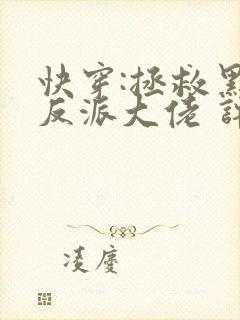 快穿:拯救黑
反派大佬
凌慶